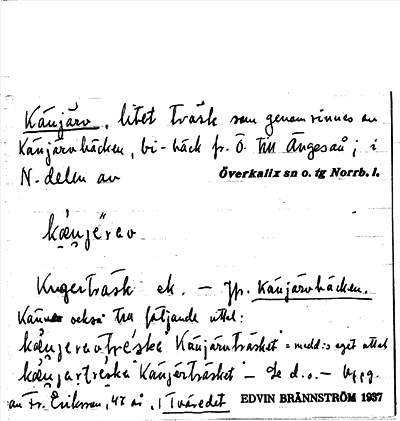 Känjärv, litet träsk som genomrinnes av
Känjärvbäcken, bi-bäck fr. Ö. till Ängesån; i
N-delen av Överkalix sn o. tg Norrb. l.
Kugerträsk ek. – Jfr. Känjärvbäcken.
också två följande uttal:
"Känjärvträsket" = medd:s eget uttal
"Känjärträsket" – Se d.o. – Uppg.
av Fr. Eriksson, 47 år, i Tväredet EDVIN BRÄNNSTRÖM 1937